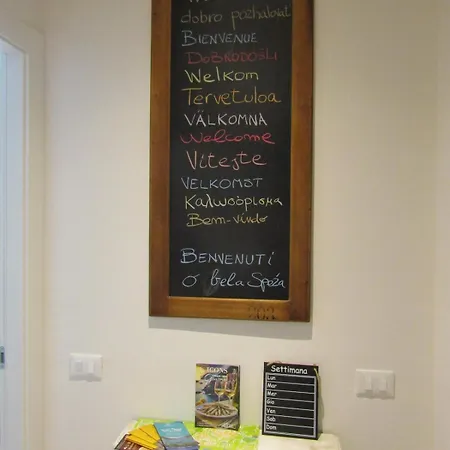 dobro pozhalovat
BIENVENUE
DOBRODOŠLI
Welkom
Tervetuloa
VÄLKOMNA
Welcome
Vitejte
VELKOMST
Καλωσόρισμα
Bem-vindo
BENVENUTI
O bela Speza
ICONS
Settimana
Lun
Mar
Mer
Gio
Ven
Sab
Dom